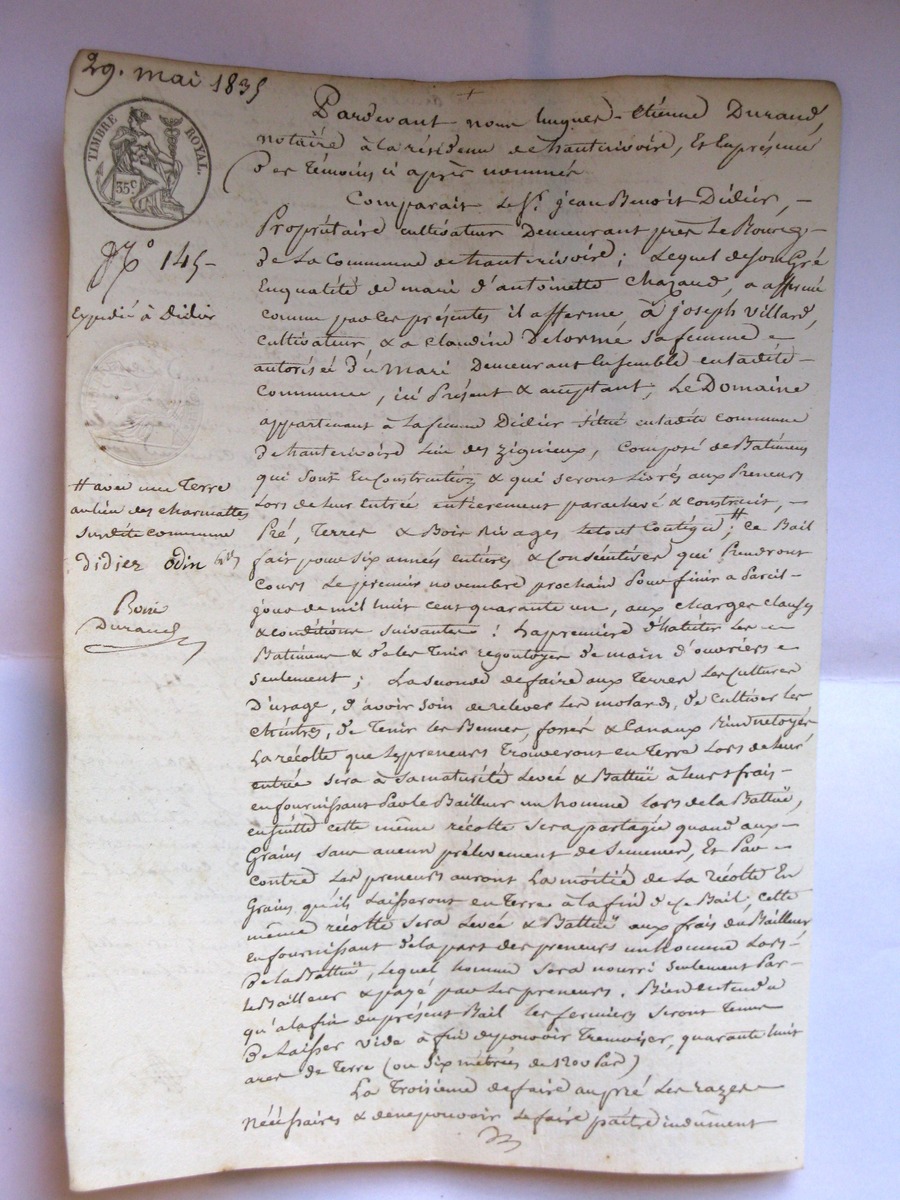 29. mai 1835
TIMBRE ROYAL.
35c
No 145-
Expedié à Didier
# avec une Terre
au lieu des charmattes
Susdite commune
Didier Odin
Durand
Pardevant nous hugues-Etienne Durand,
notaire à la résidence de hauterivoire, Et En présence
Des Témoins ci après nommés
Comparait Le Sr. jean Benoit Didier, -
Propriétaire cultivateur Demeurant près Le Bourg -
De La Commune de hauterivoire ; Lequel de son Gré
En qualité de mari d'antoinette Chazaud, a affermé
comme par ces présentes il afferme, à joseph Villard,
cultivateur & a Claudine Delorme sa femme
autorisée Du Mari Demeurant Ensemble en ladite -
commune, ici Présent & acceptant, Le Domaine
appartenant à la femme Didier situé en ladite commune
De hauterivoire Lieu des Zignieux, Composé de Batimens
qui sont En Construction & qui seront Livrés aux Preneurs
Lors de leur Entrée entierement parachevé & construit, -
Pré, Terres & Bois Rivages le tout Contigu # ; ce Bail
fait pour six années entières & Conséutives qui Prendront
Cours Le premier novembre prochain Pour finir a Pareil -
jour de mil huit cent quarante un, aux charges clauses
& conditions suivantes : La premiere D'habiter Les
Batimens & de les Tenir regoutoyés De main D'ouvriers
seulement ; La seconde de faire aux Terres Les Cultures
D'usage, D'avoir soin de relever Les molards, De Cultiver Les
Cheintres, De Tenir Les Bennes, fossés & Canaux
La récolte que Les preneurs Trouveront en Terre Lors de leur
entrée sera à sa maturité Levée & Battuë à leurs frais -
en fournissant Par le Bailleur un homme Lors de la Battuë,
ensuitte cette même récolte sera partagée quand aux -
Grains sans aucun prélevement de Semences, Et Par
contre Les preneurs auront La moitié de La récolte En
Grains qu'ils Laisseront en Terre à la fin De ce Bail, cette
même récolte sera Levée & Battuë aux frais du Bailleur
en fournissant De la part des preneurs un homme Lors -
De la Battuë, Lequel homme sera nourri seulement Par -
Le Bailleur & payé par Les preneurs. Bien entendu
qu'a la fin du présent Bail Les fermiers seront Tenus
De Laisser vide à fin de pouvoir Tremoiser, quarante huit
ares de Terre (ou six métrées de 1200 Pas)
La Troisieme de faire au pré Les razes
Nécessaires & de ne pouvoir Le faire paitre indument